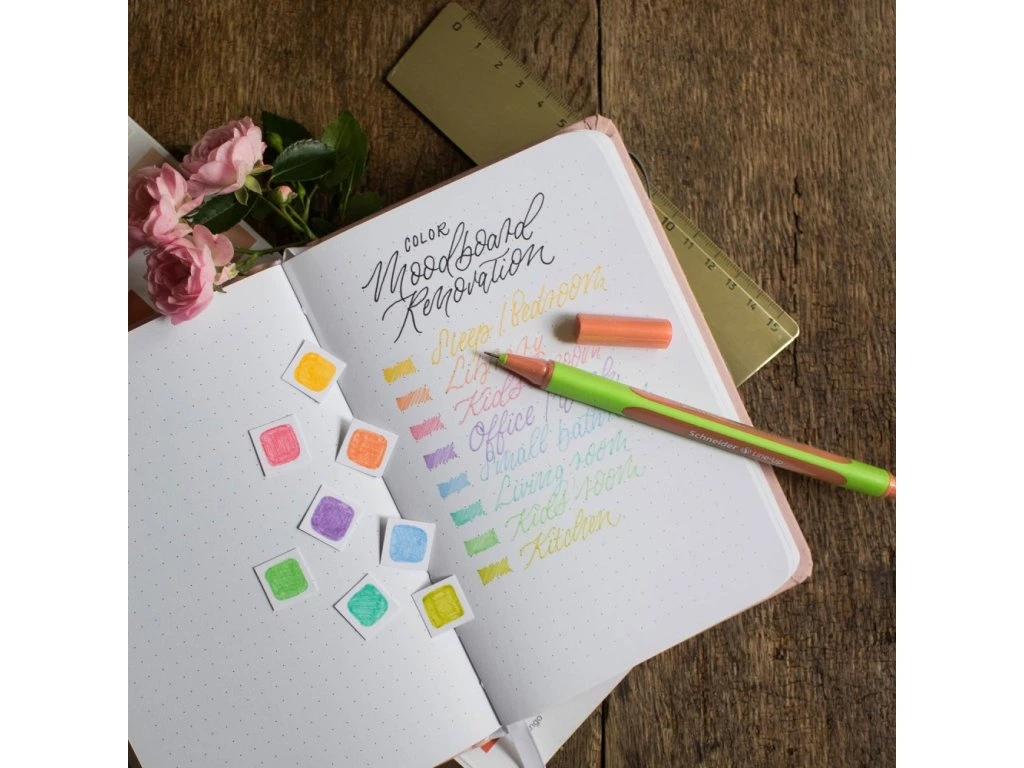 COLOR
Moodboard
Renovation
Sleep / Bedroom
Library
Kid's room
Office /
Small bath
Living room
Kid's room
Kitchen
Schneider Line-Up
0 1 2 3 4 5
10 11 12 13 14 15
ngo